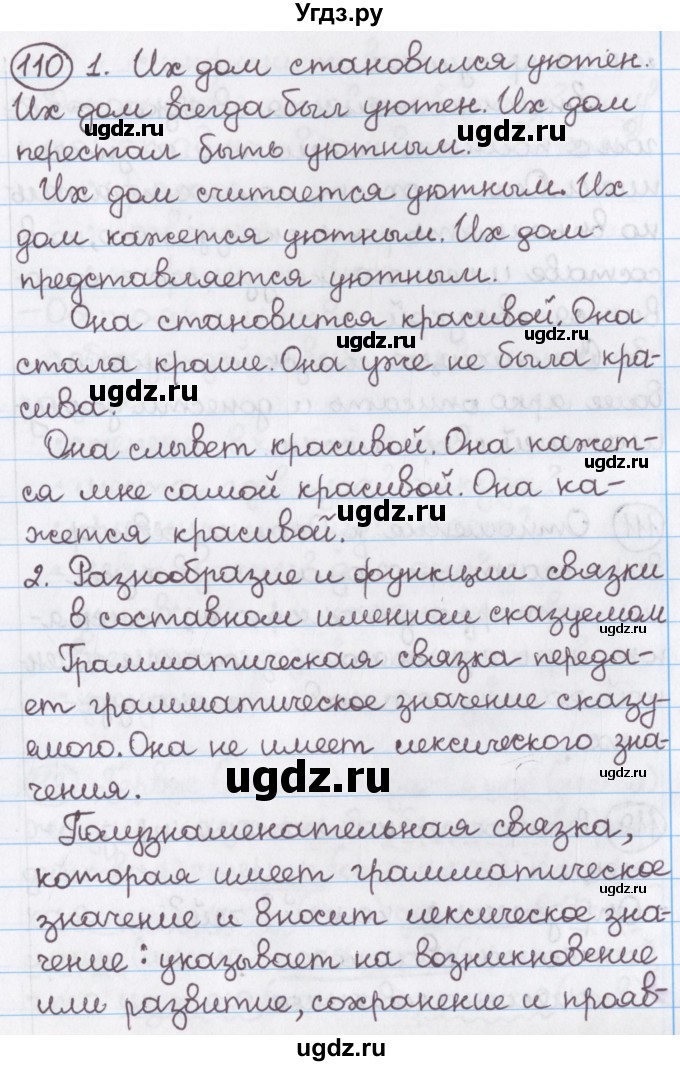 Угдз.ру
110 1. Их дом становился уютен.
Их дом всегда был уютен. Их дом
перестал быть уютным.
Их дом считается уютным. Их
дом кажется уютным. Их дом
представляется уютным.
Она становится красивой. Она
стала краше. Она уже не была кра-
сива.
Она слывет красивой. Она кажет-
ся мне самой красивой. Она ка-
жется красивой.
2. Разнообразие и функции связки
в составном именном сказуемом
Грамматическая связка переда-
ет грамматическое значение сказу-
емого. Она не имеет лексического зна-
чения.
Полузнаменательная связка,
которая имеет грамматическое
значение и вносит лексическое зна-
чение: указывает на возникновение
или развитие, сохранение и прояв-
ugdz.ru
ugdz.ru
ugdz.ru
ugdz.ru
ugdz.ru
ugdz.ru
ugdz.ru
ugdz.ru
ugdz.ru
ugdz.ru
ugdz.ru
ugdz.ru